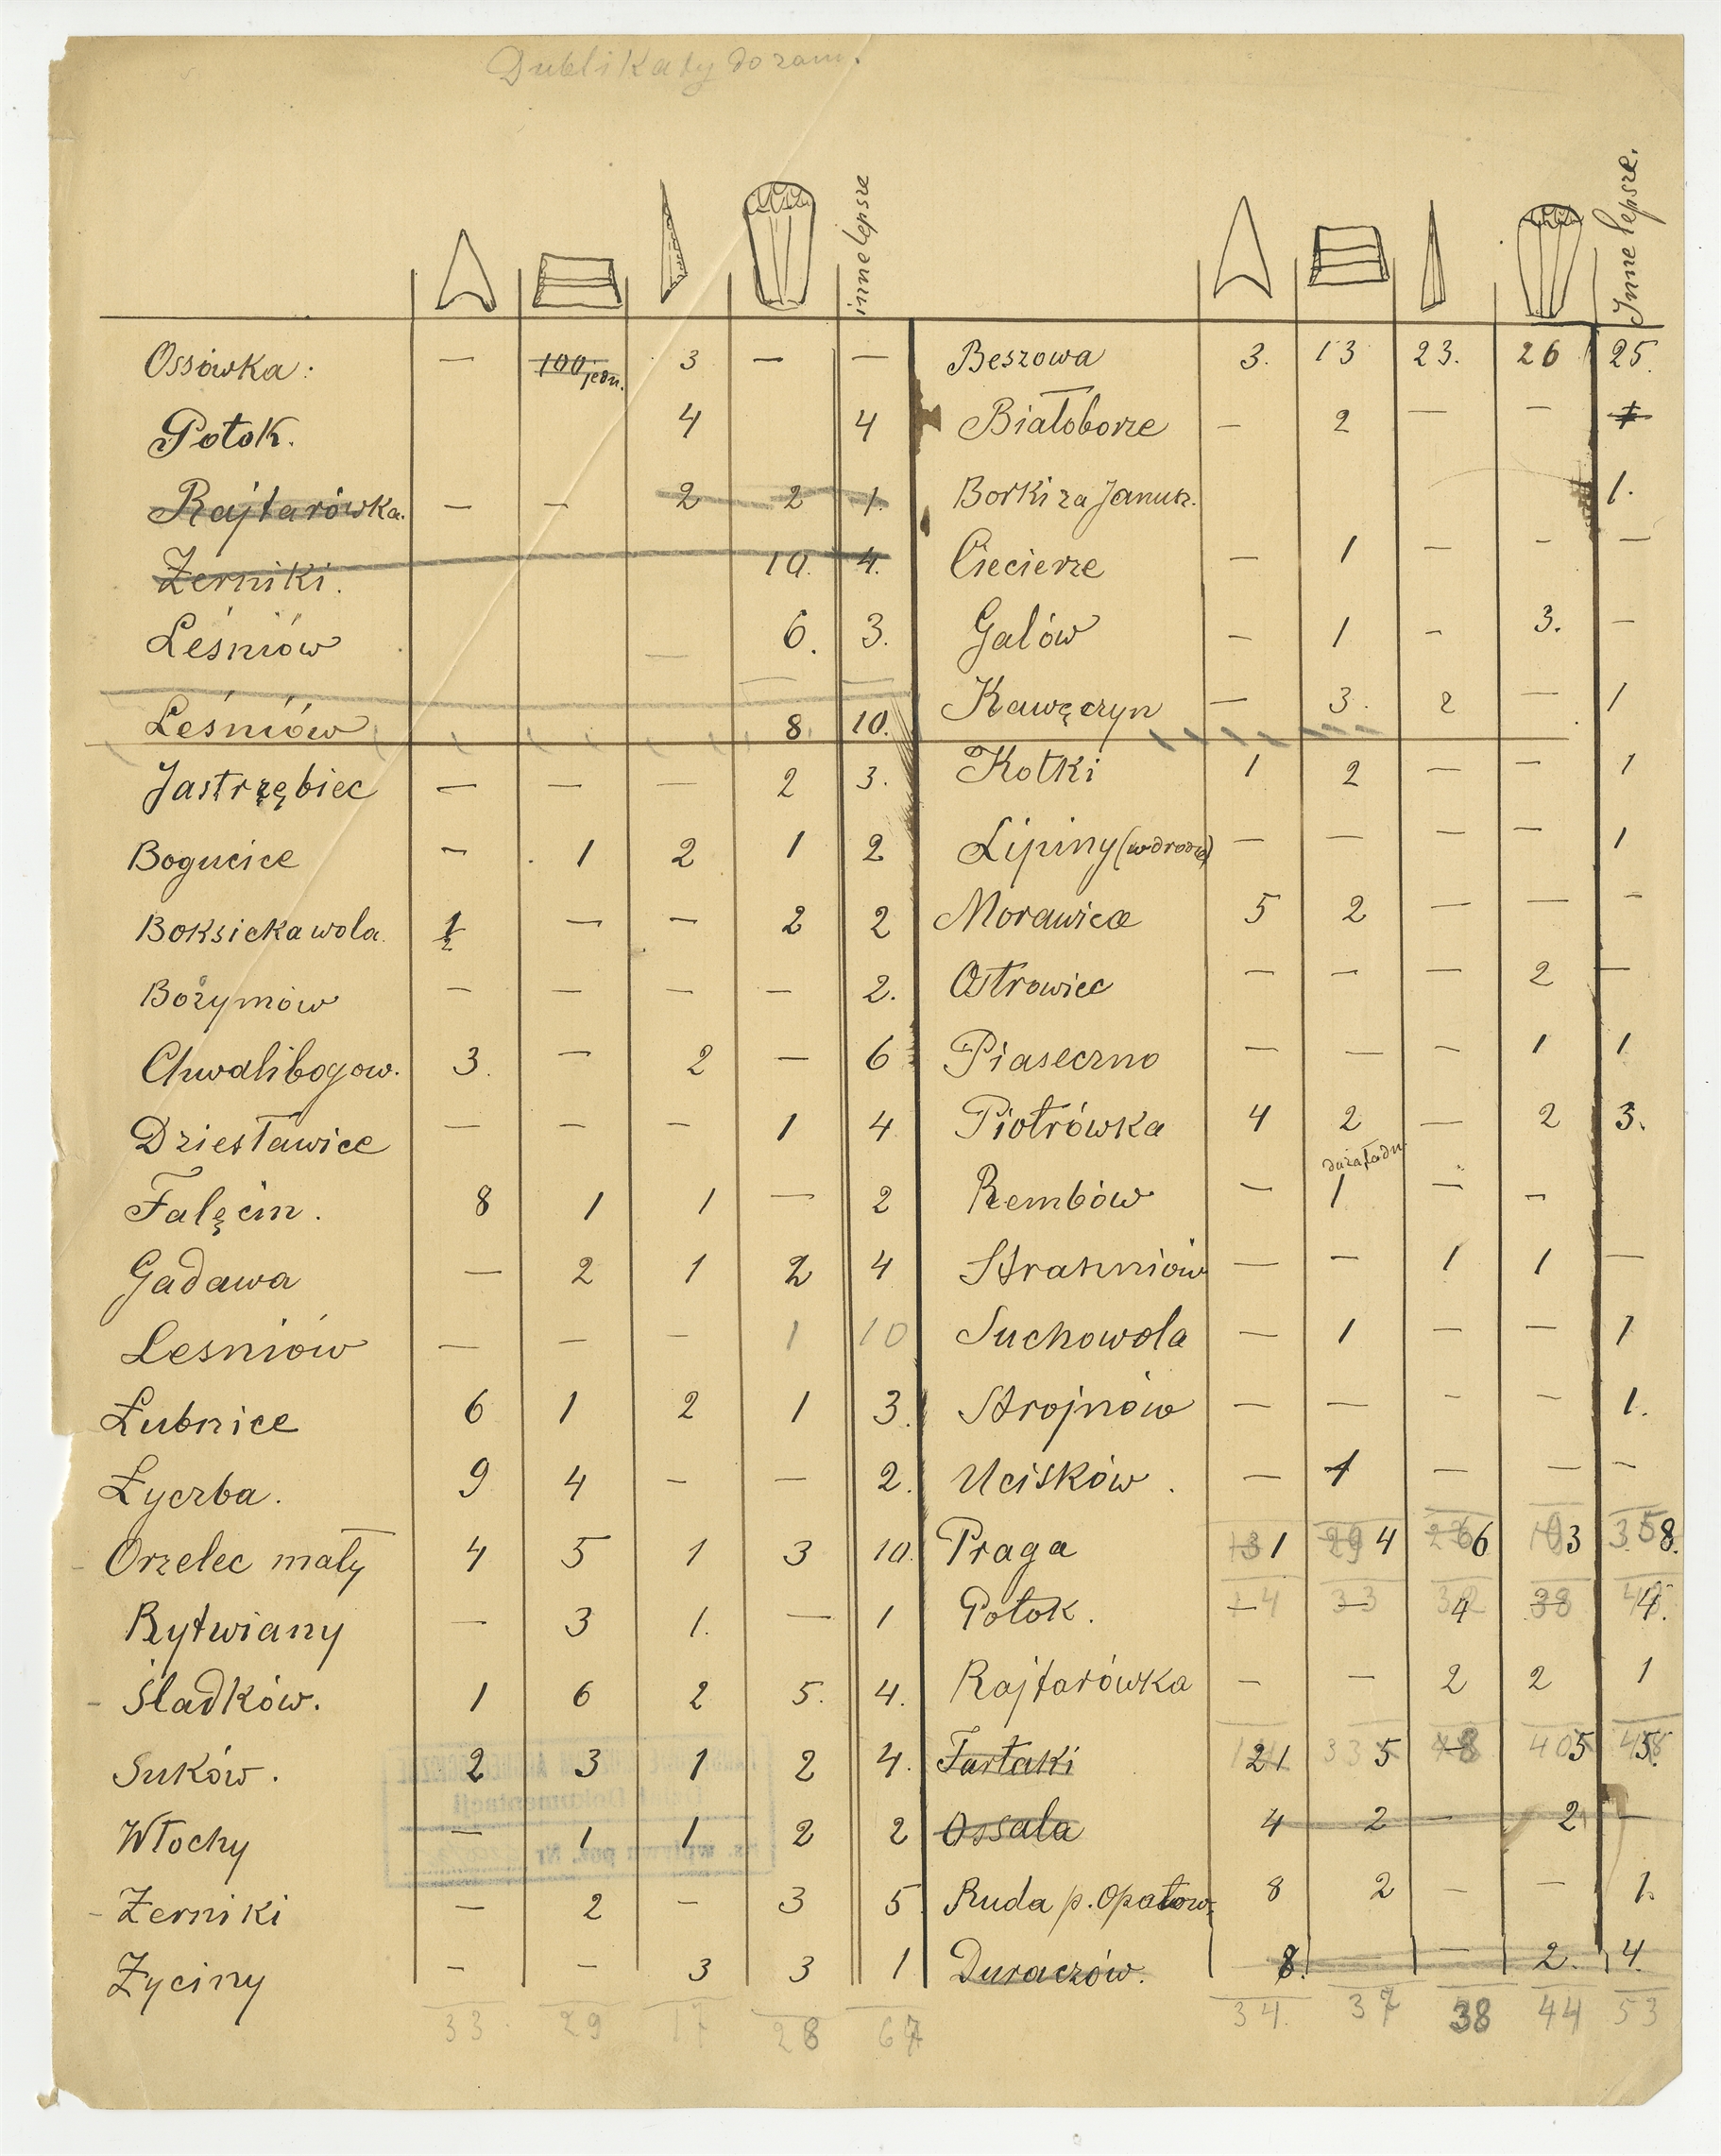 Dublikaty do zam.
inne lepsze
Inne lepsze.
Ossówka: — 100 jedn. 3 — —
Potok. 4 4
Rajtarówka. — — 2 2 1.
Żerniki. 10. 4.
Leśniów 6. 3.
Leśniów 8. 10.
Jastrzębiec — — — 2 3.
Bogucice — 1 2 1 2
Boksicka wola. 1/2 — — 2 2
Bożymów — — — — 2.
Chwalibogow. 3. — 2 — 6
Dziesławice — — — 1 4
Falęcin. 8 1 1 — 2
Gadawa — 2 1 2 4
Leśniów — — — 1 10
Łubnice 6 1 2 1 3.
Łyczba. 9 4 — — 2.
Orzelec mały 4 5 1 3 10.
Rytwiany — 3 1. — 1
Śladków. 1 6 2 5. 4.
Suków. 2 3 1 2 4.
Włochy — 1 1 2 2
Żerniki — 2 — 3 5
Życiny — — 3 3 1
33. 29 17 28 67
Beszowa 3. 13 23. 26 25.
Białoborze — 2 — —
Borki za Janusz. 1.
Ciecierze — 1 — — —
Galów — 1 — 3. —
Kawęczyn — 3. 2 — 1
Kotki 1 2 — — 1
Lipiny — — — — 1
Morawica 5 2 — — —
Ostrowiec — — — 2 —
Piaseczno — — — 1 1
Piotrówka 4 2 — 2 3.
Rembów — 1 — —
— — 1 1 —
Suchowola — 1 — — 1
Strojnów — — — — 1.
Ucisków. — 1 — — —
Praga 1 4 6 3 8.
Potok. — — 4 — 4.
Rajtarówka — — 2 2 1
Tartaki 21 5 — 5 5.
Ossala 4 2 — 2 —
Ruda p. Opatow. 8 2 — — 1.
Duraczów. 8. — — 2. 4.
34. 37 38 44 53